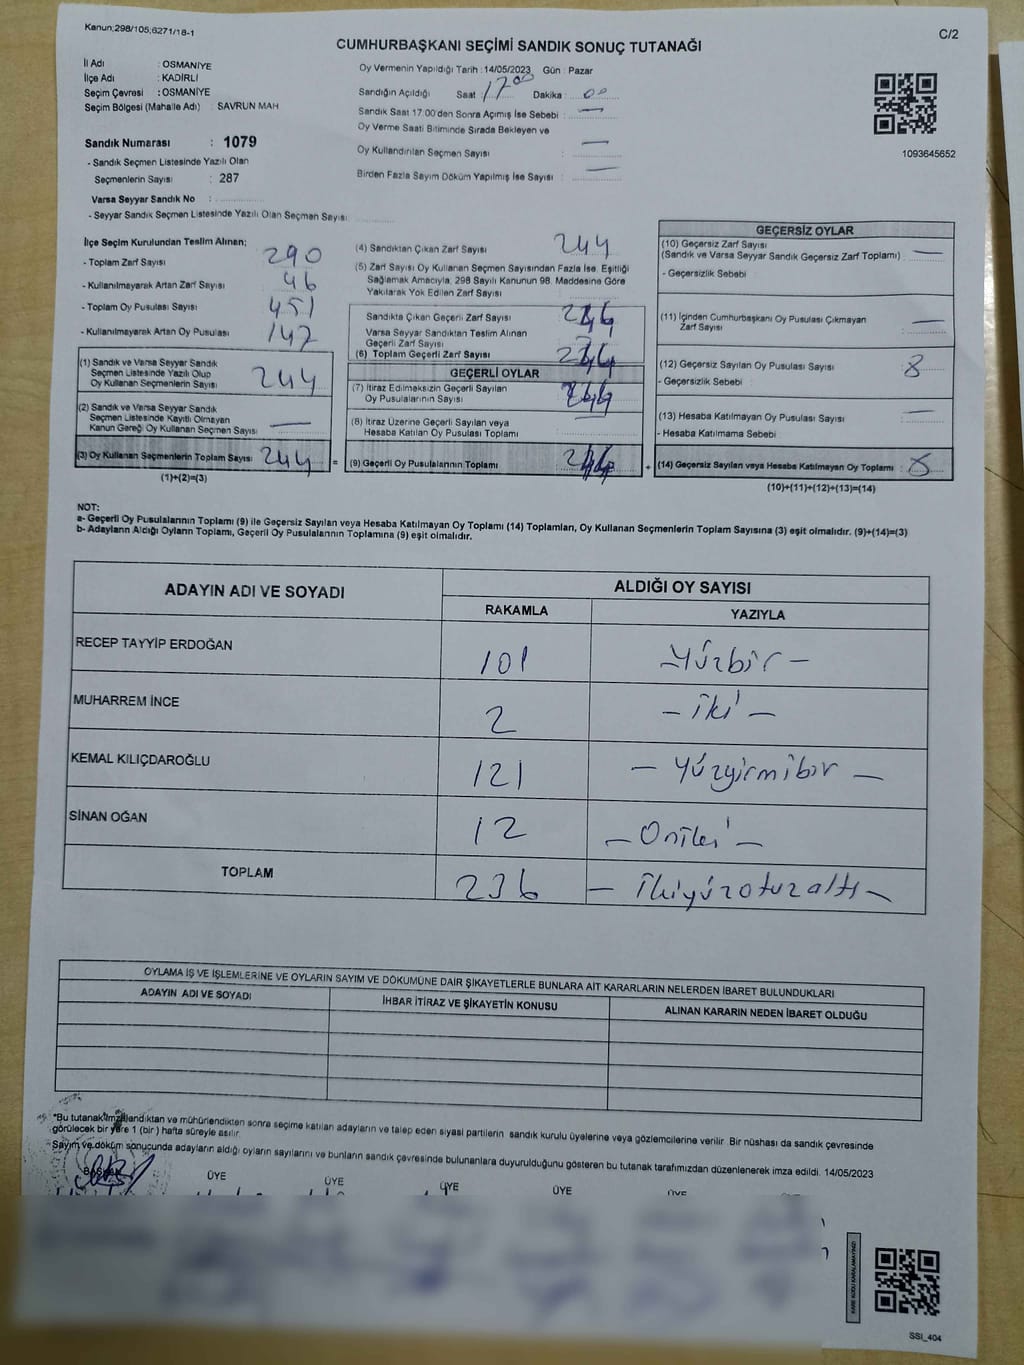 Kanun;298/105;6271/18-1
C/2
CUMHURBAŞKANI SEÇİMİ SANDIK SONUÇ TUTANAĞI
İl Adı : OSMANİYE
İlçe Adı : KADİRLİ
Seçim Çevresi : OSMANİYE
Seçim Bölgesi (Mahalle Adı) : SAVRUN MAH
Sandık Numarası : 1079
- Sandık Seçmen Listesinde Yazılı Olan
Seçmenlerin Sayısı : 287
Varsa Seyyar Sandık No :
- Seyyar Sandık Seçmen Listesinde Yazılı Olan Seçmen Sayısı:
Oy Vermenin Yapıldığı Tarih : 14/05/2023 Gün : Pazar
Sandığın Açıldığı Saat : 17 00 Dakika : 00
Sandık Saat 17.00'den Sonra Açımış İse Sebebi : —
Oy Verme Saati Bitiminde Sırada Bekleyen ve
Oy Kullandırılan Seçmen Sayısı : —
Birden Fazla Sayım Döküm Yapılmış İse Sayısı : —
1093645652
İlçe Seçim Kurulundan Teslim Alınan;
- Toplam Zarf Sayısı : 290
- Kullanılmayarak Artan Zarf Sayısı : 46
- Toplam Oy Pusulası Sayısı : 451
- Kullanılmayarak Artan Oy Pusulası : 147
(1) Sandık ve Varsa Seyyar Sandık
Seçmen Listesinde Yazılı Olup
Oy Kullanan Seçmenlerin Sayısı : 244
(2) Sandık ve Varsa Seyyar Sandık
Seçmen Listesinde Kayıtlı Olmayan
Kanun Gereği Oy Kullanan Seçmen Sayısı : —
(3) Oy Kullanan Seçmenlerin Toplam Sayısı : 244
(1)+(2)=(3)
(4) Sandıktan Çıkan Zarf Sayısı : 244
(5) Zarf Sayısı Oy Kullanan Seçmen Sayısından Fazla İse, Eşitliği
Sağlamak Amacıyla; 298 Sayılı Kanunun 98. Maddesine Göre
Yakılarak Yok Edilen Zarf Sayısı :
Sandıkta Çıkan Geçerli Zarf Sayısı
Varsa Seyyar Sandıktan Teslim Alınan
Geçerli Zarf Sayısı
(6) Toplam Geçerli Zarf Sayısı
GEÇERLİ OYLAR
(7) İtiraz Edilmeksizin Geçerli Sayılan
Oy Pusulalarının Sayısı
(8) İtiraz Üzerine Geçerli Sayılan veya
Hesaba Katılan Oy Pusulası Toplamı : —
= (9) Geçerli Oy Pusulalarının Toplamı :
+
GEÇERSİZ OYLAR
(10) Geçersiz Zarf Sayısı
(Sandık ve Varsa Seyyar Sandık Geçersiz Zarf Toplamı) : —
- Geçersizlik Sebebi :
(11) İçinden Cumhurbaşkanı Oy Pusulası Çıkmayan
Zarf Sayısı : —
(12) Geçersiz Sayılan Oy Pusulası Sayısı : 8
- Geçersizlik Sebebi :
(13) Hesaba Katılmayan Oy Pusulası Sayısı : —
- Hesaba Katılmama Sebebi
(14) Geçersiz Sayılan veya Hesaba Katılmayan Oy Toplamı : 8
(10)+(11)+(12)+(13)=(14)
NOT:
a- Geçerli Oy Pusulalarının Toplamı (9) ile Geçersiz Sayılan veya Hesaba Katılmayan Oy Toplamı (14) Toplamları, Oy Kullanan Seçmenlerin Toplam Sayısına (3) eşit olmalıdır. (9)+(14)=(3)
b- Adayların Aldığı Oyların Toplamı, Geçerli Oy Pusulalarının Toplamına (9) eşit olmalıdır.
ADAYIN ADI VE SOYADI
ALDIĞI OY SAYISI
RAKAMLA
YAZIYLA
RECEP TAYYİP ERDOĞAN 101 — Yüzbir —
MUHARREM İNCE 2 — iki —
KEMAL KILIÇDAROĞLU 121 — Yüzyirmibir —
SİNAN OĞAN 12 — Oniki —
TOPLAM 236 — ikiyüzotuzaltı —
OYLAMA İŞ VE İŞLEMLERİNE VE OYLARIN SAYIM VE DÖKÜMÜNE DAİR ŞİKAYETLERLE BUNLARA AİT KARARLARIN NELERDEN İBARET BULUNDUKLARI
ADAYIN ADI VE SOYADI
İHBAR İTİRAZ VE ŞİKAYETİN KONUSU
ALINAN KARARIN NEDEN İBARET OLDUĞU
*Bu tutanak imzalandıktan ve mühürlendikten sonra seçime katılan adayların ve talep eden siyasi partilerin sandık kurulu üyelerine veya gözlemcilerine verilir. Bir nüshası da sandık çevresinde
görülecek bir yere 1 (bir) hafta süreyle asılır.
Sayım ve döküm sonucunda adayların aldığı oyların sayılarını ve bunların sandık çevresinde bulunanlara duyurulduğunu gösteren bu tutanak tarafımızdan düzenlenerek imza edildi. 14/05/2023
BAŞKAN ÜYE ÜYE ÜYE ÜYE ÜYE
SSİ_404